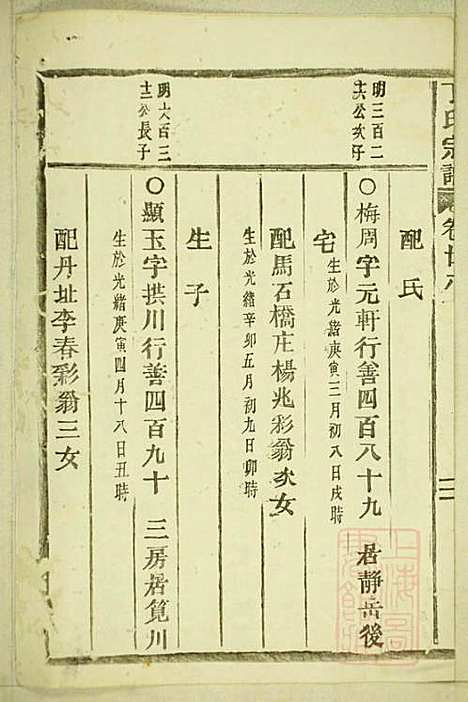 丁氏宗譜 卷廿六
配氏
明三百二
十六公次子
○梅周字元軒行善四百八十九 居靜岳後
宅
生於光緒庚寅三月初八日戌時
配馬石橋庄楊兆彩翁次女
生於光緒辛卯五月初九日卯時
生子
明六百三
十三公長子
○顯玉字拱川行善四百九十 三房居筧川
生於光緒庚寅四月十八日丑時
配丹址李春彩翁三女